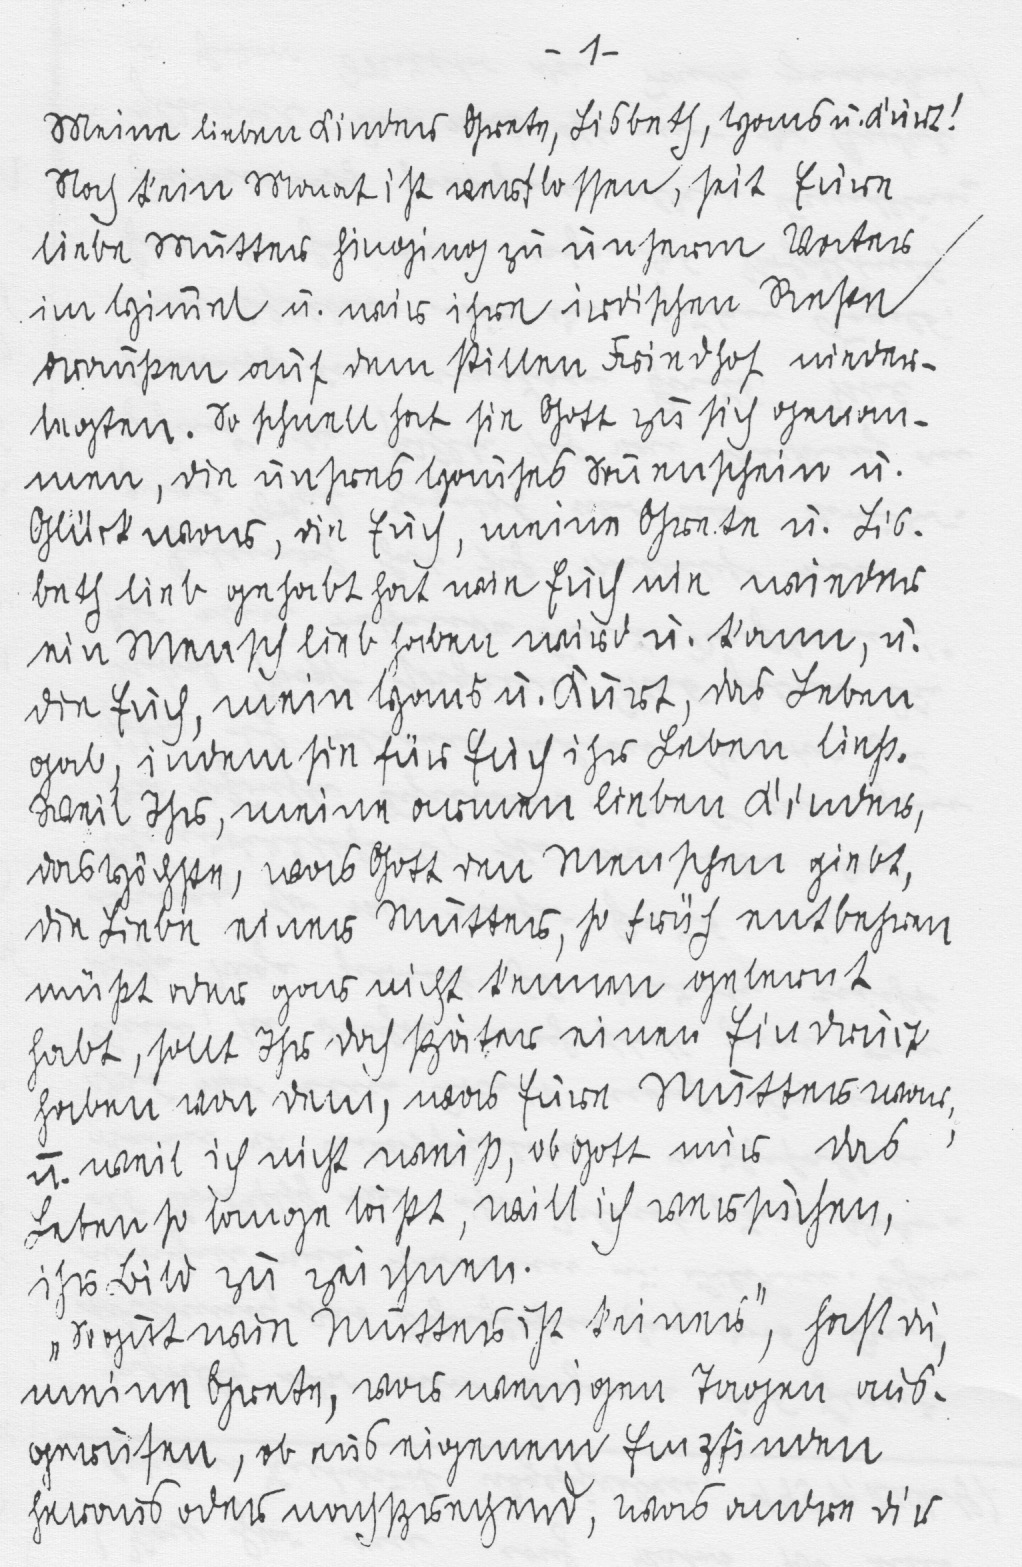 - 1 -
Meine lieben Kinder Grete, Lisbeth, Hans u. Kurt!
Noch kein Monat ist verflossen, seit Eure
liebe Mutter hinging zu unserm Vater
im Him̅el u. wir ihre irdischen Reste
draußen auf dem stillen Friedhof nieder-
legten. So schnell hat sie Gott zu sich genom-
men, die unsres Hauses Son̅enschein u.
Glück war, die Euch, meine Grete u. Lis-
beth lieb gehabt hat wie Euch nie wieder
ein Mensch lieb haben wird u. kann, u.
die Euch, mein Hans u. Kurt, das Leben
gab, indem sie für Euch ihr Leben ließ.
Weil Ihr, meine armen lieben Kinder,
das Höchste, was Gott den Menschen giebt,
die Liebe einer Mutter, so früh entbehren
müßt oder gar nicht kennen gelernt
habt, sollt Ihr doch später einen Eindruck
haben von dem, was Eure Mutter war,
u. weil ich nicht weiß, ob Gott mir das
Leben so lange läßt, will ich versuchen,
ihr Bild zu zeichnen.
„So gut wie Mutter ist keiner", hast du,
meine Grete, vor wenigen Tagen aus-
gerufen, ob aus eigenem Empfinden
heraus oder nachsprechend, was andre dir